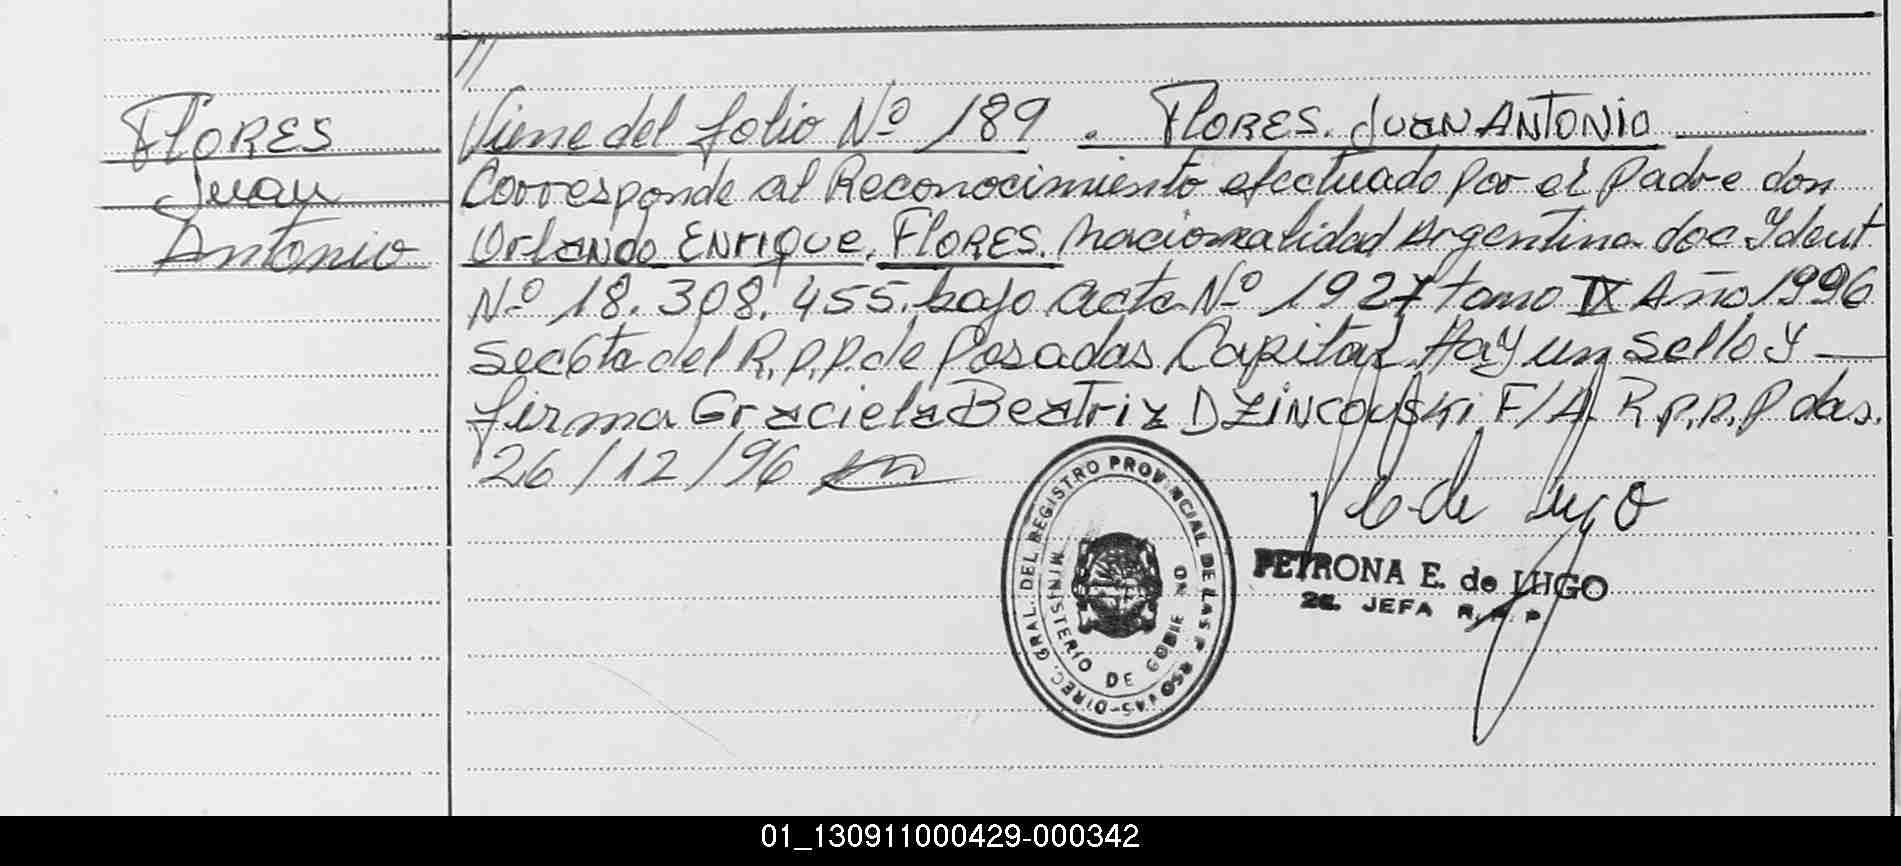 //
Flores
Juan
Antonio
Viene del folio Nº 189 . Flores. Juan Antonio
Corresponde al Reconocimiento efectuado por el padre don
Orlando Enrique. Flores. Nacionalidad Argentina doc. Ydent
Nº 18.308.455. bajo acta Nº 1927 tomo IX Año 1996
Secc 6ta del R.p.p. de Posadas Capital Hay un sello y
firma Graciela Beatriz Dzincovski F/A. R.p.p. Pdas.
26/12/96
DIREC. GRAL. DEL REGISTRO PROVINCIAL DE LAS PERSONAS
MINISTERIO DE GOBIERNO
de Lugo
PETRONA E. de LUGO
2a. JEFA R.P.P
01_130911000429-000342